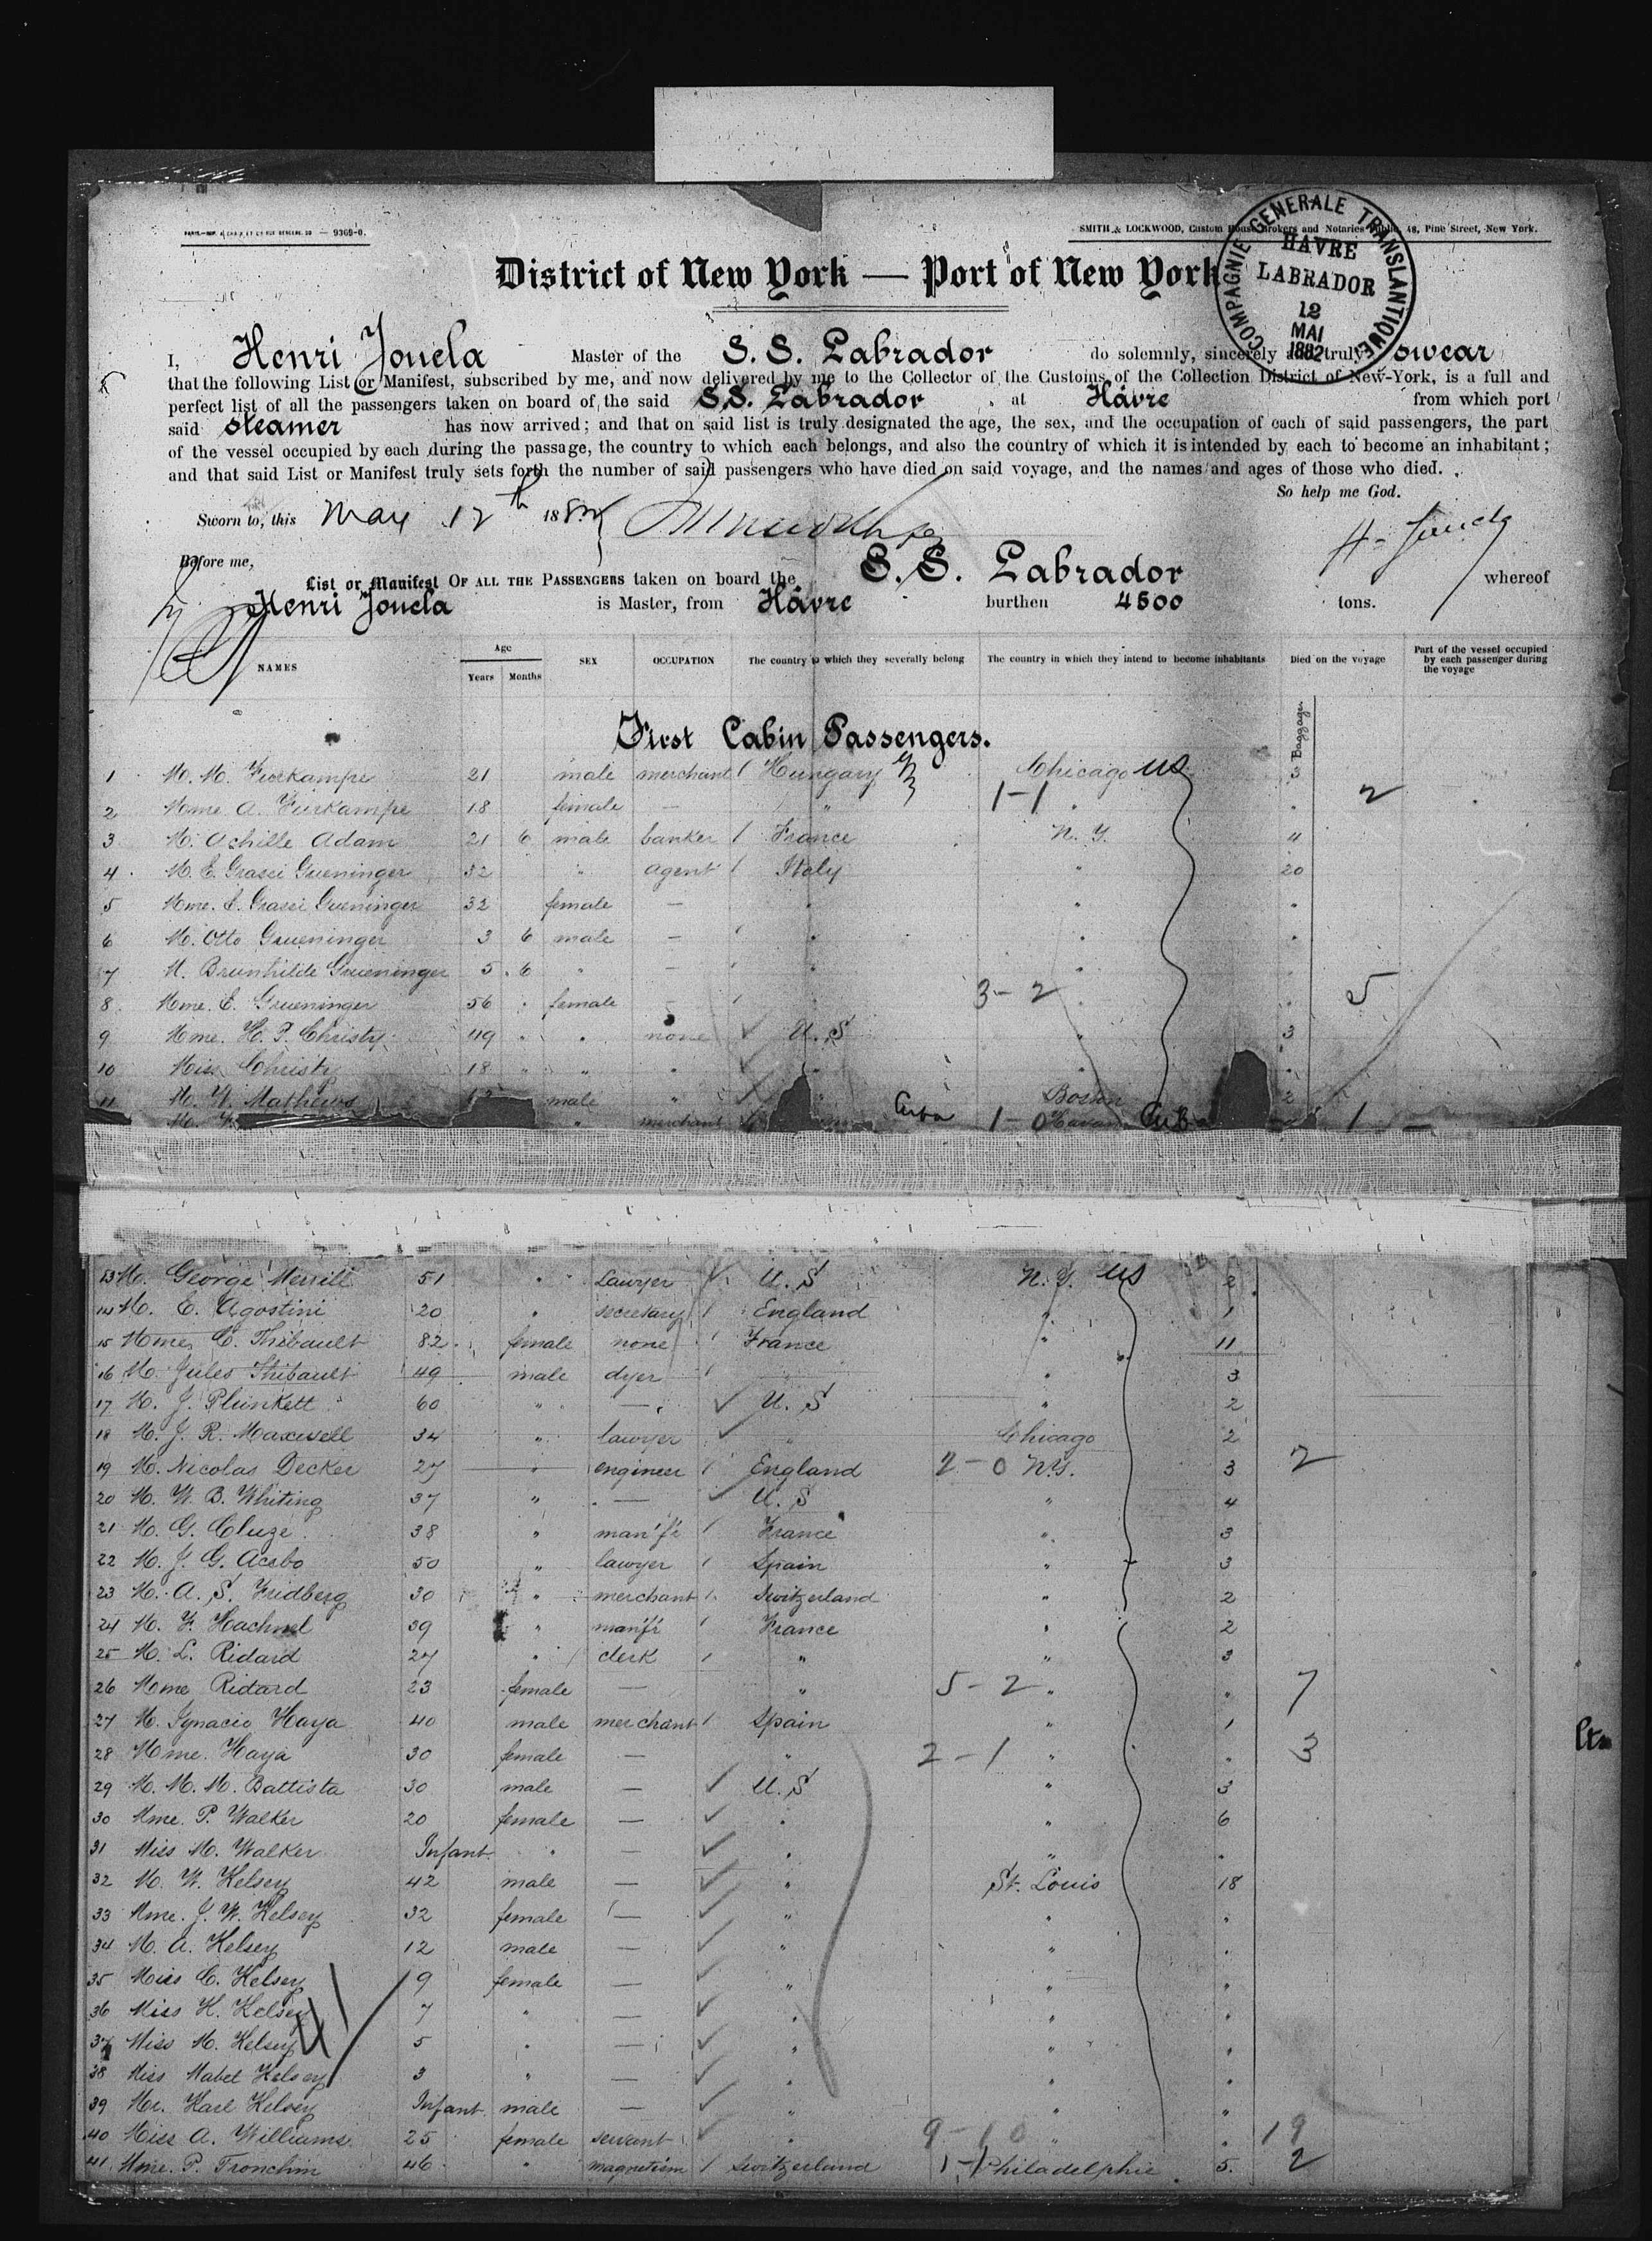 PARIS.—IMP. A. CHAIX ET Cie RUE BERGÈRE, 20 — 9369-0.
SMITH & LOCKWOOD, Custom House Brokers and Notaries Public, 48, Pine Street, New York.
COMPAGNIE GENERALE TRANSLANTIQUE
HAVRE
LABRADOR
12
MAI
1882
District of New York — Port of New York
I, Henri Jouela Master of the S. S. Labrador do solemnly, sincerely and truly swear
that the following List or Manifest, subscribed by me, and now delivered by me to the Collector of the Customs of the Collection District of New-York, is a full and
perfect list of all the passengers taken on board of the said S.S. Labrador at Hâvre from which port
said steamer has now arrived; and that on said list is truly designated the age, the sex, and the occupation of each of said passengers, the part
of the vessel occupied by each during the passage, the country to which each belongs, and also the country of which it is intended by each to become an inhabitant;
and that said List or Manifest truly sets forth the number of said passengers who have died on said voyage, and the names and ages of those who died.
So help me God.
Sworn to, this May 12th 1882
H. Jouela
Before me,
List or Manifest OF ALL THE PASSENGERS taken on board the S. S. Labrador whereof
Henri Jouela is Master, from Hâvre burthen 4500 tons.
NAMES Age Years Months SEX OCCUPATION The country to which they severally belong The country in which they intend to become inhabitants Died on the voyage Part of the vessel occupied by each passenger during the voyage
Baggage
First Cabin Passengers.
1 M. M. Fuerkampe 21 male merchant / Hungary Chicago US 3
2 Mme. A. Fuerkampe 18 female — " 1-1 " " 2
3 M. Achille Adam 21 6 male banker / France N. Y. 4
4 M. E. Grasei Grueninger 32 " agent / Italy " 20
5 Mme. E. Grasei Grueninger 32 female — " " "
6 M. Otto Grueninger 3 6 male — " " "
7 M. Brunhilde Grueninger 5 6 " — " " "
8 Mme. E. Grueninger 56 " female 3-2 " " 5
9 Mme. H. P. Christy 49 " " none ✓ U. S " 3
10 Miss Christy 18 " " " ✓ " " "
11 M. W. Mathews male " ✓ " Boston 2
M. " merchant Cuba 1-0 Havana Cuba 1
13 M. George Merrill 51 " Lawyer ✓ U. S N. Y. US 2
14 M. E. Agostini 20 " secretary / England " 1
15 Mme. C. Thibault 82 female none / France " 11
16 M. Jules Thibault 49 male dyer / " " 3
17 M. J. Plunkett 60 " — ✓ U. S " 2
18 M. J. R. Maxwell 34 " lawyer ✓ " Chicago 2
19 M. Nicolas Decker 27 " engineer / England 2-0 N.Y. 3 2
20 M. W. B. Whiting 37 " — ✓ U. S " 4
21 M. G. Cluze 38 " man'f'r / France " 3
22 M. J. G. Acebo 50 " lawyer / Spain " 3
23 M. A. S. Fridberg 30 " merchant / Switzerland " 2
24 M. F. Hachnel 39 " man'f'r / France " 2
25 M. L. Ridard 27 " clerk / " " 3
26 Mme Ridard 23 female — " 5-2 " " 7
27 M. Ignacio Haya 40 male merchant / Spain " 1
28 Mme. Haya 30 female — " 2-1 " " 3
29 M. M. M. Battista 30 male — ✓ U. S " 3
30 Mme. P. Walker 20 female — ✓ " " 6
31 Miss M. Walker Infant " — ✓ " " "
32 M. W. Kelsey 42 male — ✓ " St. Louis 18
33 Mme. J. W. Kelsey 32 female — ✓ " " "
34 M. A. Kelsey 12 male — ✓ " " "
35 Miss C. Kelsey 9 female — ✓ " " "
36 Miss H. Kelsey 7 " — ✓ " " "
37 Miss M. Kelsey 5 " — ✓ " " "
38 Miss Mabel Kelsey 3 " — ✓ " " "
39 Mr. Karl Kelsey Infant male — ✓ " " "
40 Miss A. Williams 25 female servant ✓ " 9-10 " " 19
41 Mme. P. Tronchin 46 " magnetism / Switzerland 1-1 Philadelphie 5 2